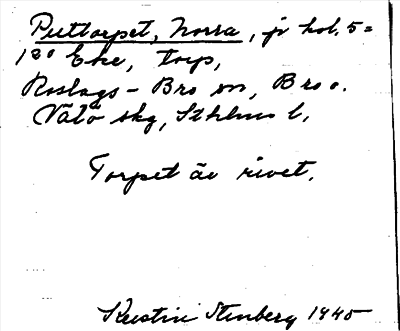 Puttorpet, Norra, jr kol. 5=
12° Eke, torp,
Roslags-Bro sn, Bro o.
Vätö skg, Sthlms l.
Torpet är rivet.
Kerstin Stenberg 1945